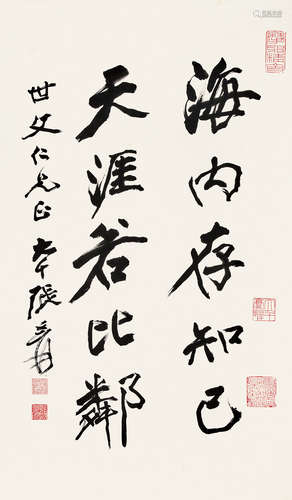 海内存知己
天涯若比鄰
世文仁兄正 大千張爰